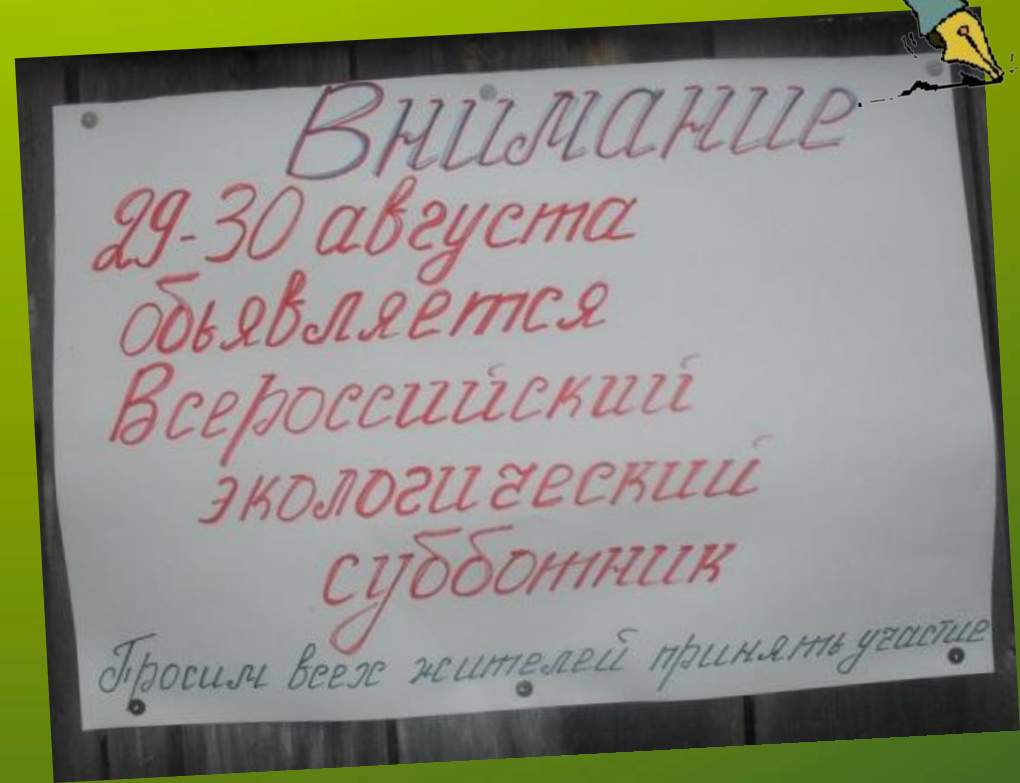 Внимание
29-30 августа
обьявляется
Всероссийский
экологический
субботник
Просим всех жителей принять участие